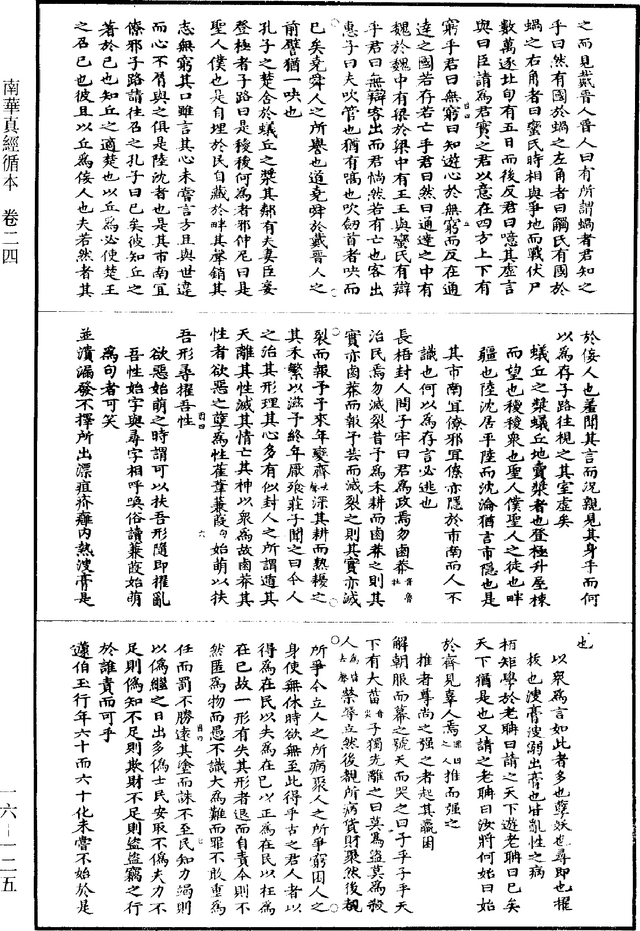 之而見戴晉人晉人曰有所謂蝸者君知之
乎曰然有國於蝸之左角者曰觸氏有國於
蝸之右角者曰蠻氏時相與爭地而戰伏尸
數萬逐北旬有五日而後反君曰噫其虛言
與曰臣請為君實之君以意在四方上下有
窮乎君曰無窮曰知遊心於無窮而反在通
達之國若存若亡乎君曰然曰通達之中有
魏於魏中有梁於梁中有王王與蠻氏有辯
乎君曰無辯客出而君惝然若有亡也客出
惠子曰夫吹管也猶有嗃也吹劍首者吷而
已矣堯舜人之所譽也道堯舜於戴晉人之
前譬猶一吷也
孔子之楚舍於蟻丘之漿其鄰有夫妻臣妾
登極者子路曰是稯稯何為者邪仲尼曰是
聖人僕也是自埋於民自藏於畔其聲銷其
志無窮其口雖言其心未嘗言方且與世違
而心不屑與之俱是陸沈者也是其市南宜
僚邪子路請往召之孔子曰已矣彼知丘之
著於己也知丘之適楚也以丘為必使楚王
之召己也彼且以丘為佞人也夫若然者其
於佞人也羞聞其言而況親見其身乎而何
以為存子路往視之其室虛矣
蟻丘之漿蟻丘地賣漿者也登極升屋棟
而望也稯稯衆也聖人僕聖人之徒也畔
疆也陸沈居平陸而沈淪猶言市隱也是
其市南宜僚邪宜僚亦隱於市南而人不
識也何以為存言必逃也
長梧封人問子牢曰君為政焉勿鹵莽
治民焉勿滅裂昔予為禾耕而鹵莽之則其
實亦鹵莽而報予芸而滅裂之則其實亦滅
裂而報予予來年變齊深其耕而熟耰之
其禾繁以滋予終年厭飱莊子聞之曰今人
之治其形理其心多有似封人之所謂遁其
天離其性滅其情亡其神以衆為故鹵莽其
性者欲惡之孽為性萑葦蒹葭始萌以扶
吾形尋擢吾性
欲惡始萌之時謂可以扶吾形隨即擢亂
吾性始字與尋字相呼喚俗讀蒹葭始萌
為句者可笑
並潰漏發不擇所出漂疽疥癰內熱溲膏是
也
以衆為言如此者多也孽妖也尋即也擢
拔也溲膏溲溺出膏也皆亂性之病
栢矩學於老聃曰請之天下遊老聃曰已矣
天下猶是也又請之老聃曰汝將何始曰始
於齊見辜人焉推而強之
推者尊尚之強之者起其羸困
解朝服而幕之號天而哭之曰子乎子乎天
下有大菑子獨先離之曰莫為盜莫為殺
人榮辱立然後覩所病貨財聚然後覩
所爭今立人之所病聚人之所爭窮困人之
身使無休時欲無至此得乎古之君人者以
得為在民以失為在己以正為在民以枉為
在己故一形有失其形者退而自責今則不
然匿為物而愚不識大為難而罪不敢重為
任而罰不勝遠其塗而誅不至民知力竭則
以偽繼之日出多偽士民安取不偽夫力不
足則偽知不足則欺財不足則盜盜竊之行
於誰責而可乎
蘧伯玉行年六十而六十化未嘗不始於是
南華真經循本 卷二四
一六—一二五